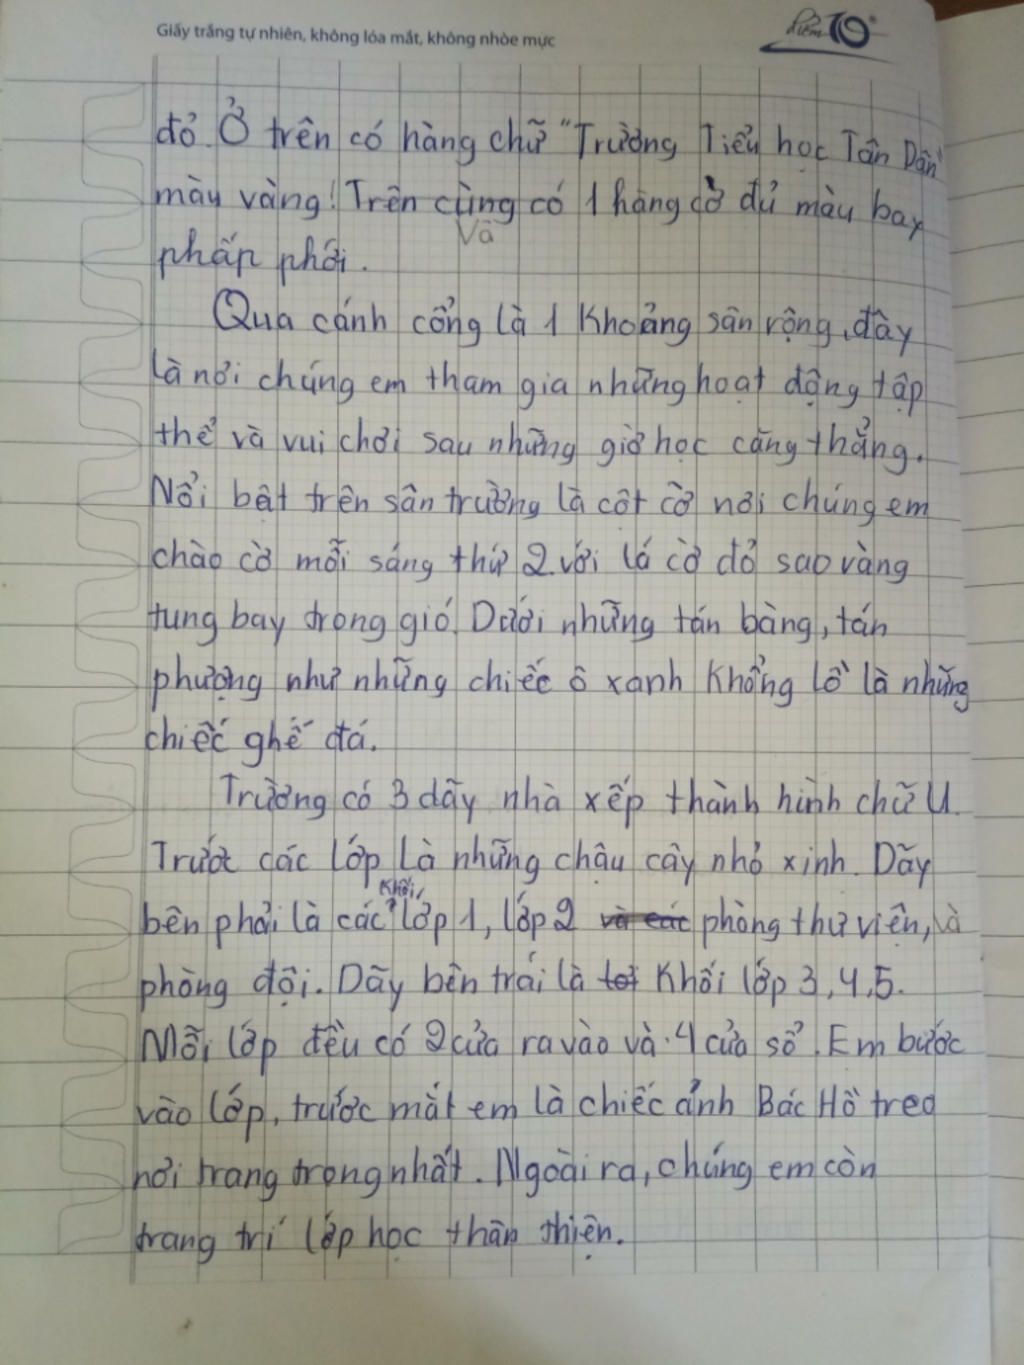 Giấy trắng tự nhiên, không lóa mắt, không nhòe mực
điểm 10
đỏ. Ở trên có hàng chữ "Trường Tiểu học Tân Dân"
màu vàng! Trên cùng có 1 hàng cờ đủ màu bay
Và
phấp phới.
Qua cánh cổng là 1 khoảng sân rộng, đây
là nơi chúng em tham gia những hoạt động tập
thể và vui chơi sau những giờ học căng thẳng.
Nổi bật trên sân trường là cột cờ nơi chúng em
chào cờ mỗi sáng thứ 2 với lá cờ đỏ sao vàng
tung bay trong gió. Dưới những tán bàng, tán
phượng như những chiếc ô xanh khổng lồ là những
chiếc ghế đá.
Trường có 3 dãy nhà xếp thành hình chữ U.
Trước các lớp là những chậu cây nhỏ xinh. Dãy
khối
bên phải là các lớp 1, lớp 2 và các phòng thư viện, là
phòng đội. Dãy bên trái là khối lớp 3, 4, 5.
Mỗi lớp đều có 2 cửa ra vào và 4 cửa sổ. Em bước
vào lớp, trước mắt em là chiếc ảnh Bác Hồ treo
nơi trang trọng nhất. Ngoài ra, chúng em còn
trang trí lớp học thân thiện.